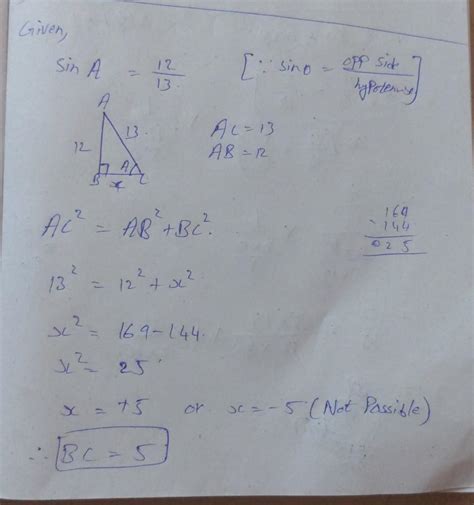 Given,
sin A = 12/13 [∵ sinθ = opp side/hypotenuse]
A
12 13
B A C
x
AC = 13
AB = 12
AC² = AB² + BC².
13² = 12² + x²
169
- 144
025
x² = 169 - 144.
x² = 25
x = +5 or x = -5 (Not Possible)
∴ BC = 5